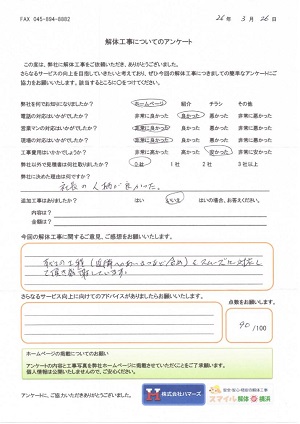 FAX 045-894-8882 26年 3月 26日
解体工事についてのアンケート
この度は、弊社に解体工事をご依頼いただき、ありがとうございました。
さらなるサービスの向上を目指していきたいと考えており、ぜひ今回の解体工事につきましての簡単なアンケートにご
協力をお願いいたします。該当するところに○をつけてください。
弊社を何でお知りになりましたか? ホームページ 紹介 チラシ その他
電話の対応はいかがでしたか? 非常に良かった 良かった 悪かった 非常に悪かった
営業マンの対応はいかがでしたか? 非常に良かった 良かった 悪かった 非常に悪かった
現場の対応はいかがでしたか? 非常に良かった 良かった 悪かった 非常に悪かった
工事費用はいかがでしたか? 非常に高かった 高かった 安かった 非常に安かった
弊社以外で見積書は何社取りましたか? 0社 1社 2社 3社以上
弊社に決めた理由は何ですか?
社長の人柄が良かった。
追加工事はありましたか? はい いいえ はいの場合、お答えください。
内容は?
金額は?
今回の解体工事に関するご意見、ご感想をお願いいたします。
全ての工程(近隣へのあいさつなど含め)をスムーズに対応し
て頂き感謝しています。
さらなるサービス向上に向けてのアドバイスがありましたらお願いします。
点数をお願いします。
90 /100
ホームページの掲載についてのお願い
アンケートの内容と工事写真を弊社ホームページに掲載させていただくことをご了承願います。
個人情報は公開いたしませんので、ご安心ください。
アンケートに、ご協力いただきありがとうございました。
H 株式会社ハマーズ
安全・安心・格安の解体工事
スマイル解体 横浜